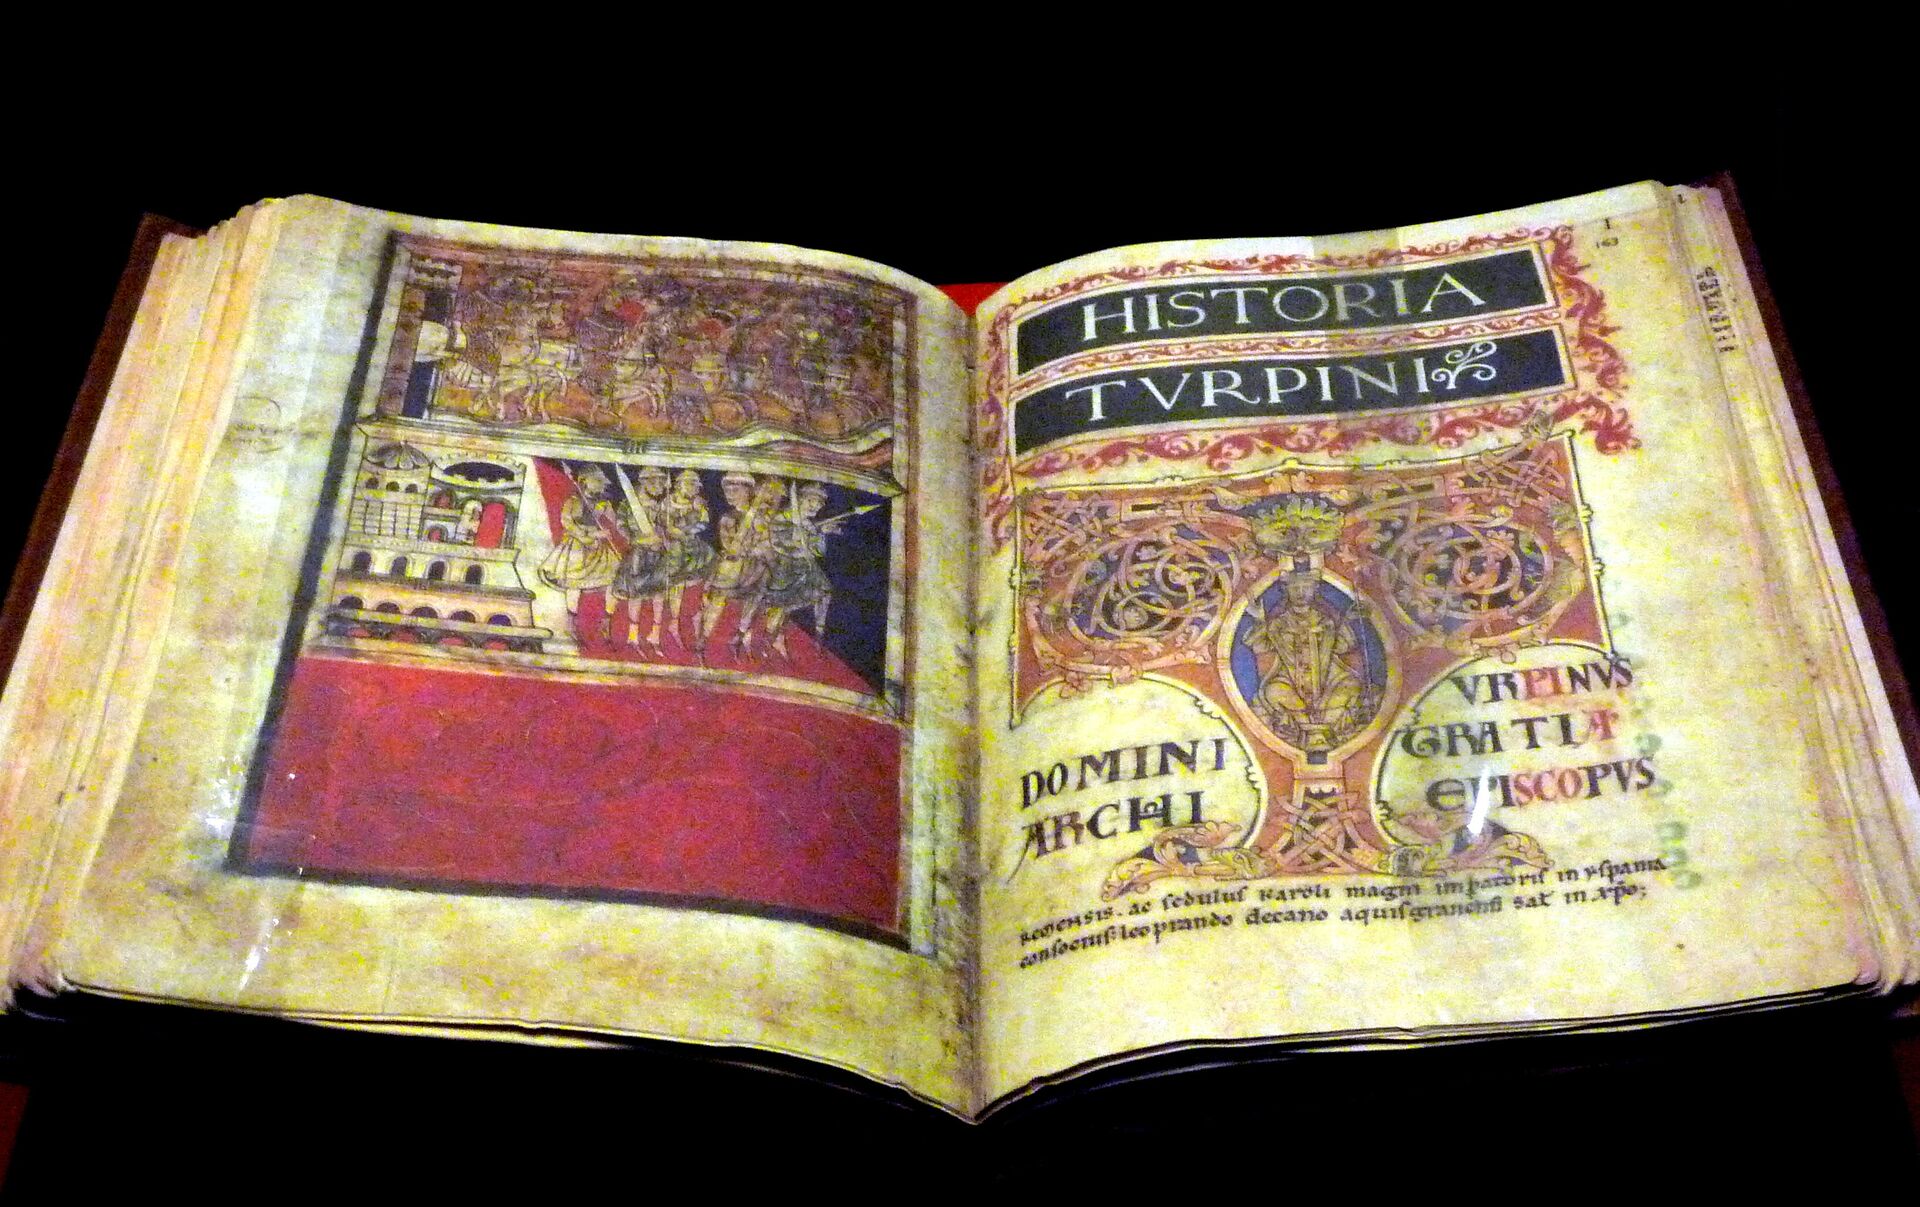 1
HISTORIA
TVRPINI
TVRPINVS
DOMINI GRATIA
ARCHI EPISCOPVS
REMENSIS. ac ſeduluſ karoli magni impatoriſ in yſpania
conſociuſ. leoprando decano aquiſgranenſi sał in xpo;